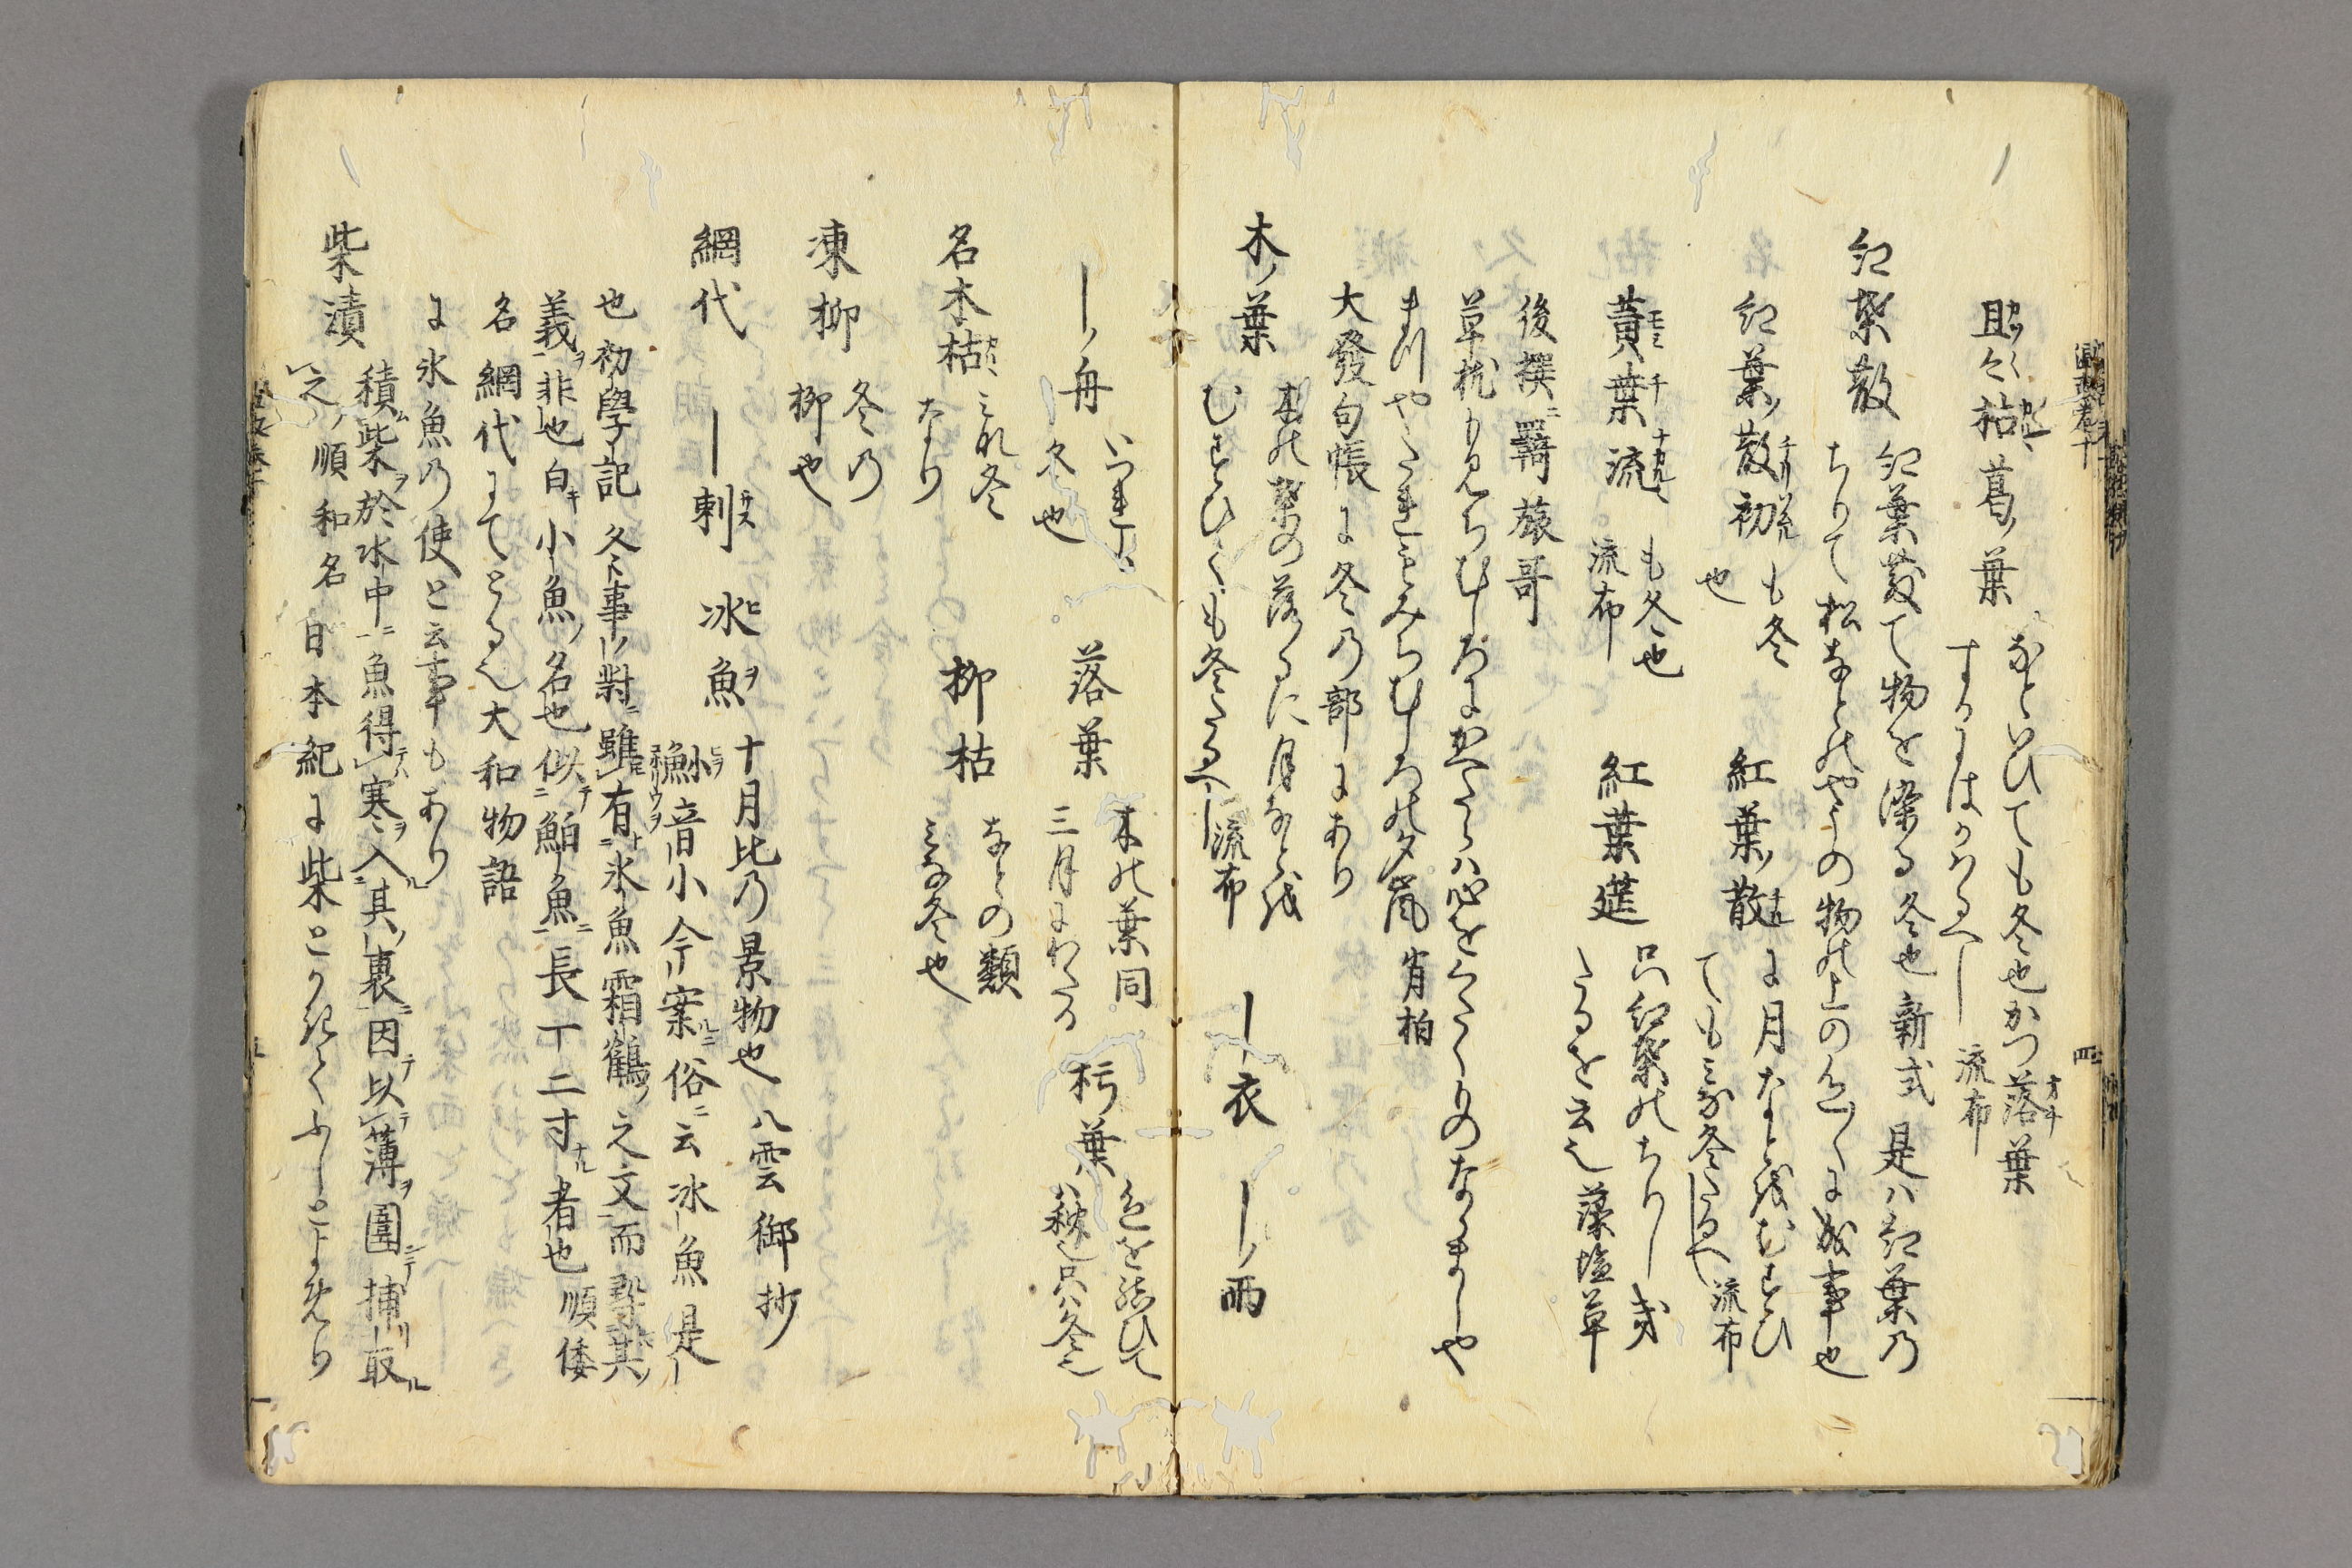 且々枯葛ノ葉
なといひても冬也かつ落葉
するにはかはるへし 流布
紅葉散 紅葉散て物を染る冬也 新式 是ハ紅葉乃
ちりて松なとのやうの物の上の色々に成事也
紅葉ノ散初 も冬也
紅葉ノ散 に月なと結むすひても冬たるへし 流布
黄葉流 も冬也 流布
紅葉莚 只紅葉のちりしきたるを云也 藻塩草
後撰ニ羇旅哥
草枕もみちむしろにかへたらハ心をくたくものならましや
まつやたれもみちむしろの夕嵐 肖柏
大發句帳に冬乃部にあり
木ノ葉 木の葉の落るに月なと
むすひても冬たるへし 流布
―衣 ―ノ雨
―ノ舟 いつれも冬也
落葉 木の葉同 三月にわたる
朽葉 色を結ひてハ秋也只ハ冬也
名木枯 これ冬なり
柳枯 なとの類 みな冬也
凍柳 冬乃柳也
網代 ―刺 氷魚ヲ 十月比乃景物也 八雲御抄
音小今案俗ニ云氷魚是
也初學記冬事對ニ雖有氷魚霜鶴ノ之文而尋其ノ
義ヲ非也白キ小魚ノ名也似テ鮊魚ニ長一二寸ナル者也 順倭
名 網代にてとる也 大和物語
に氷魚乃使と云事もあり
柴漬 積柴ヲ於水中ニ魚得テ寒ヲ入其ノ裏ニ因テ以テ薄ヲ圍テ捕取ル
之ヲ 順和名 日本紀に柴とかきてふしとよめり